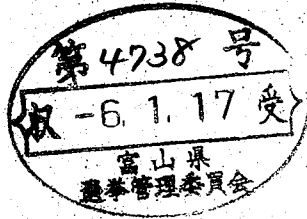 第4738号
収 -6.1.17 受
富山県
選挙管理委員会